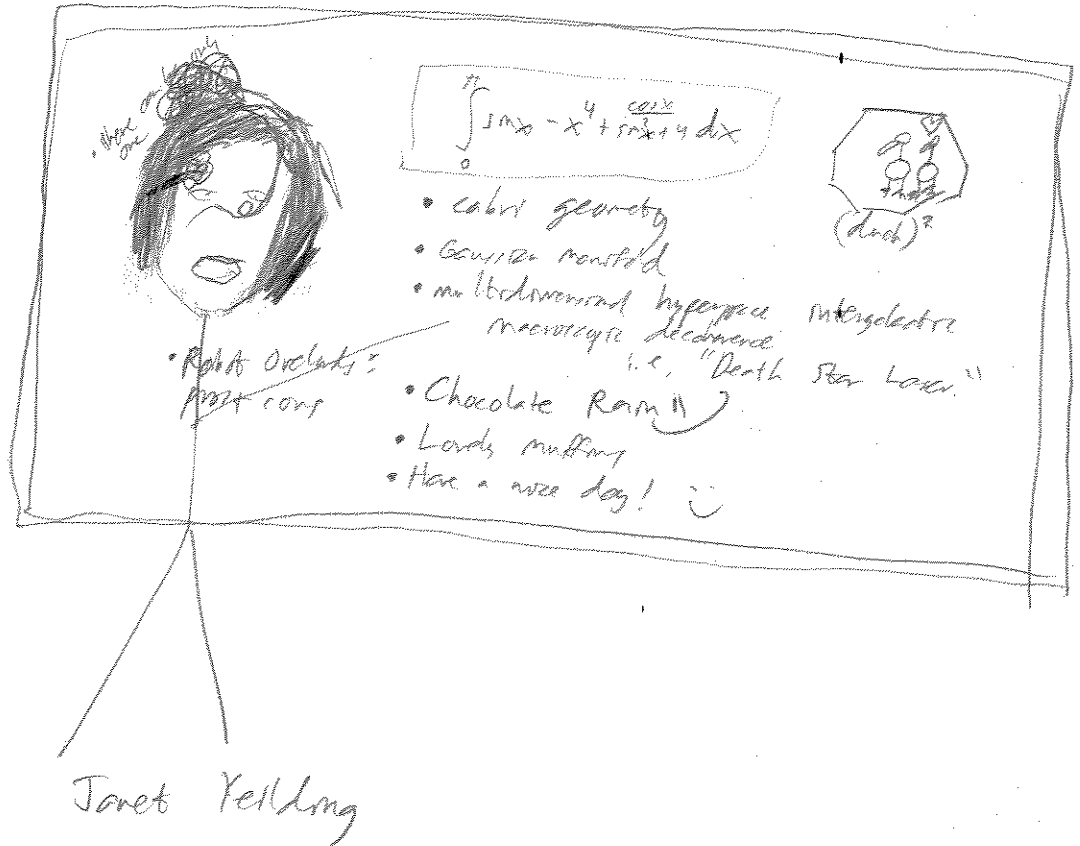 only
∫₀^π sin x - x⁴ + cos x / sin²x + 4 dx
(duck)²
• cabri geometry
• Gaussian manifold
• multidimensional hyperspace intergalactic
macroscopic decoherence
i.e. "Death Star Laser"
• Robot Overlords:
pro + cons
• Chocolate Rain!!
• Lovely muffins
• Have a nice day!
Janet Yeilding